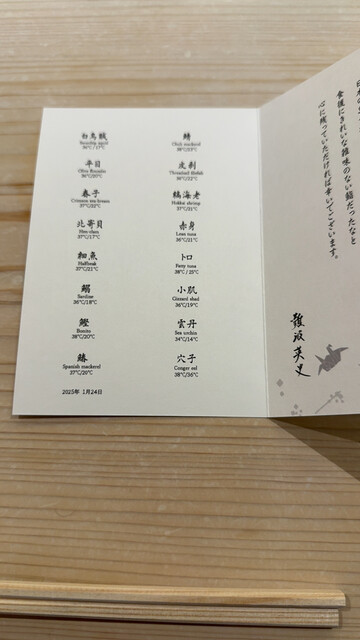 白烏賊
36°C / 17°C
平目
Olive flounder
36°C/20°C
春子
Crimson sea bream
37°C/22°C
北寄貝
Hen clam
37°C/17°C
細魚
Halfbeak
37°C/21°C
鰯
Sardine
36°C/18°C
鰹
Bonito
38°C/20°C
鰆
Spanish mackerel
37°C/20°C
2025年 1月24日
鯖
Chub mackerel
38°C/23°C
皮剥
Threadsail filefish
36°C/22°C
縞海老
Hokkai shrimp
37°C/21°C
赤身
Lean tuna
36°C/21°C
トロ
Fatty tuna
38°C / 25°C
小肌
Gizzard shad
36°C/19°C
雲丹
Sea urchin
34°C/14°C
穴子
Conger eel
38°C/36°C
食後にきれいな雑味のない鮨だったなと
心に残っていただければ幸いでございます。